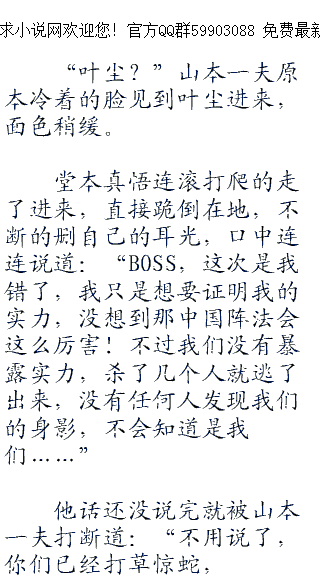 求小说网欢迎您！官方QQ群59903088 免费最新
“叶尘？”山本一夫原
本冷着的脸见到叶尘进来，
面色稍缓。
堂本真悟连滚打爬的走
了进来，直接跪倒在地，不
断的删自己的耳光，口中连
连说道：“BOSS，这次是我
错了，我只是想要证明我的
实力，没想到那中国阵法会
这么厉害！不过我们没有暴
露实力，杀了几个人就逃了
出来，没有任何人发现我们
的身影，不会知道是我
们……”
他话还没说完就被山本
一夫打断道：“不用说了，
你们已经打草惊蛇，